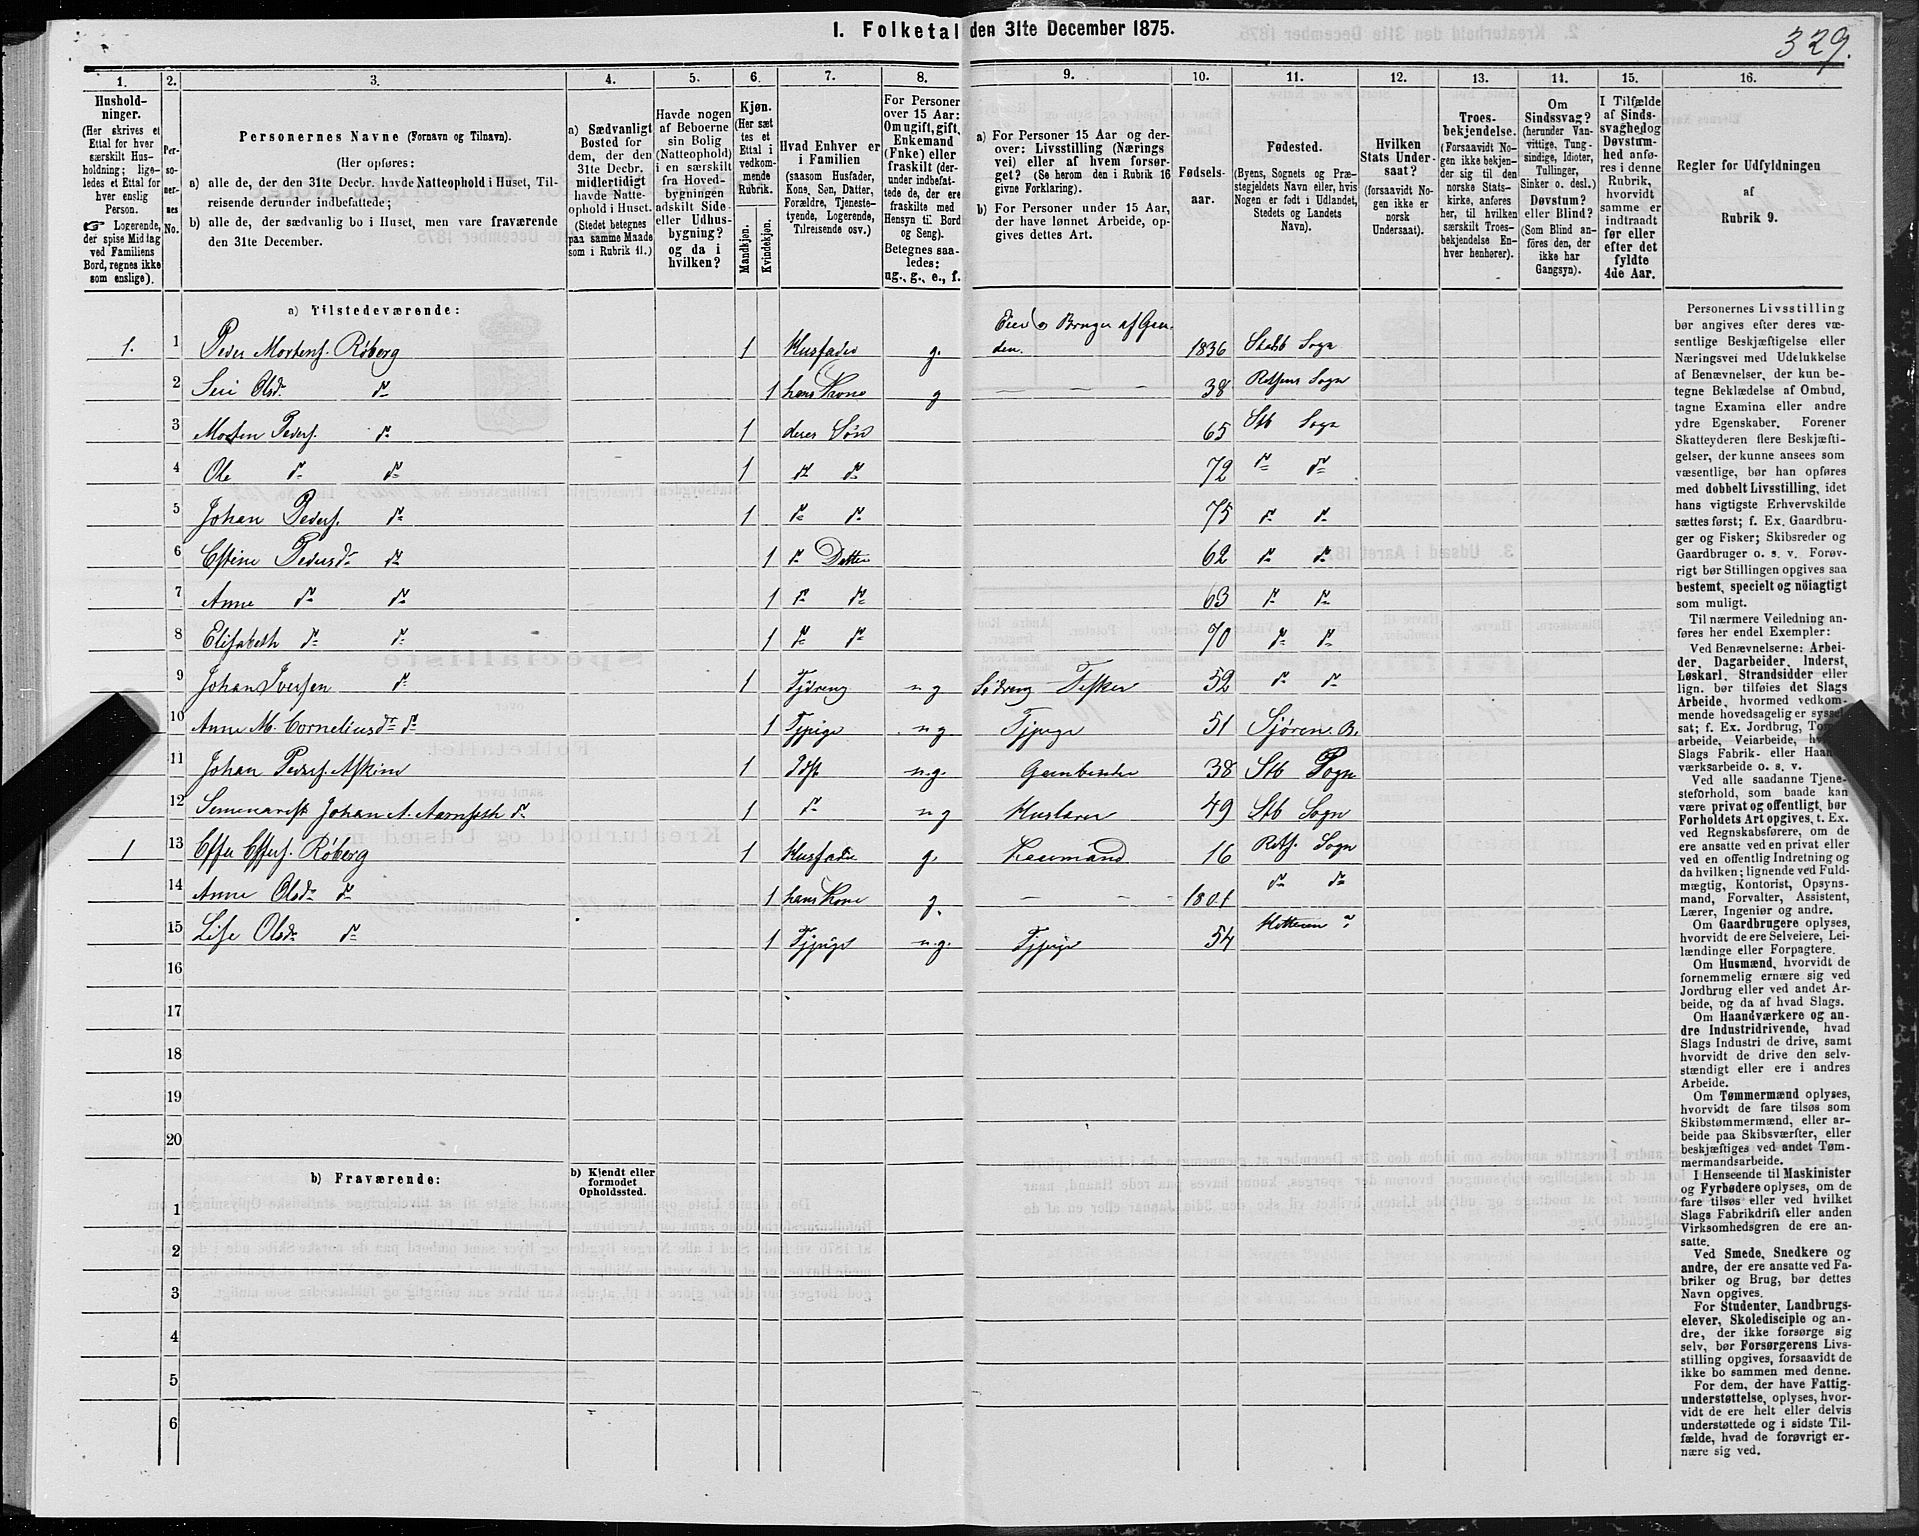 I. Folketal den 31te December 1875.
329.
1. 2. 3. 4. 5. 6. 7. 8. 9. 10. 11. 12. 13. 14. 15. 16.
Hushold-
ninger.
(Her skrives et
Ettal for hver
særskilt Hus-
holdning; lige-
ledes et Ettal for
hver enslig
Person.
☞ Logerende,
der spise Middag
ved Familiens
Bord, regnes ikke
som enslige).
Per-
so-
ner-
nes
No.
Personernes Navne (Fornavn og Tilnavn).
(Her opføres:
a) alle de, der den 31te Decbr. havde Natteophold i Huset, Til-
reisende derunder indbefattede;
b) alle de, der sædvanlig bo i Huset, men vare fraværende
den 31te December.
a) Sædvanligt
Bosted for
dem, der den
31te Decbr.
midlertidigt
havde Natte-
ophold i Huset.
(Stedet betegnes
paa samme Maade
som i Rubrik 11.)
Havde nogen
af Beboerne
sin Bolig
(Natteophold)
i en særskilt
fra Hoved-
bygningen
adskilt Side-
eller Udhus-
bygning?
og da i
hvilken?
Kjøn.
(Her sæt
tes et
Ettal i
vedkom-
mende
Rubrik.
Mandkjøn.
Kvindekjøn.
Hvad Enhver er
i Familien
(saasom Husfader,
Kone, Søn, Datter,
Forældre, Tjeneste-
tyende, Logerende,
Tilreisende osv.)
For Personer
over 15 Aar:
Om ugift, gift,
Enkemand
(Enke) eller
fraskilt (der-
under indbefat-
tede de, der ere
fraskilte med
Hensyn til Bord
og Seng).
Betegnes saa-
ledes:
ug., g., e., f.
a) For Personer 15 Aar og der-
over: Livsstilling (Nærings
vei) eller af hvem forsør-
get? (Se herom den i Rubrik 16
givne Forklaring).
b) For Personer under 15 Aar,
der have lønnet Arbeide, op-
gives dettes Art.
Fødsels-
aar.
Fødested.
(Byens, Sognets og Præ-
stegjeldets Navn eller, hvis
Nogen er født i Udlandet,
Stedets og Landets
Navn).
Hvilken
Stats Under-
saat?
(forsaavidt No-
gen ikke er
norsk
Undersaat).
Troes-
bekjendelse.
(Forsaavidt No-
gen ikke bekjen-
der sig til den
norske Stats-
kirke, anføres
her, til hvilken
særskilt Troes-
bekjendelse En-
hver henhører).
Om
Sindssvag?
(herunder Van-
vittige, Tung-
sindige, Idioter,
Tullinger,
Sinker o. desl.)
Døvstum?
eller Blind?
(Som Blind an-
føres den, der
ikke har
Gangsyn).
I Tilfælde
af Sinds-
svaghed og
Døvstum-
hed anfø-
res i denne
Rubrik,
hvorvidt
samme er
indtraadt
før eller
efter det
fyldte
4de Aar.
Regler for Udfyldningen
af
Rubrik 9.
a) Tilstedeværende:
1. 1 Peder Mortens. Røberg 1 Husfader g. Eier og Bruger af Gaarden. 1836 Stb Sogn
2 Seri Olsd. do 1 hans Kone g — — — 38 Sogn
3 Morten Peders. do 1 deres Søn 65 Stb Sogn
4 Ole do do 1 do do 72 do do
5 Johan Peders. do 1 do do 75 do do
6 Pedersd. do 1 do Datter 62 do do
7 Anne do do 1 do do 63 do do
8 Elisabeth do do 1 do do 70 do do
9 Johan Iversen do 1 ug Fisker 52 do do
10 Anne M. Corneliusd. do 1 Tjpige ug Tjpige 51
11 Johan Peders. 1 ug. 38 Stb Sogn
12 Johan A. do 1 do ug 49 Stb Sogn
1 13 Røberg 1 Husfader g. 16 Sogn
14 Anne Olsd. do 1 hans Kone g. — — 1801 do do
15 Lise Olsd. do 1 Tjpige ug. Tjpige 54
16
17
18
19
20
b) Fraværende:
b) Kjendt eller
formodet
Opholdssted.
1
2
3
4
5
6
Personernes Livsstilling
bør angives efter deres væ-
sentlige Beskjæftigelse eller
Næringsvei med Udelukkelse
af Benævnelser, der kun be-
tegne Beklædelse af Ombud,
tagne Examina eller andre
ydre Egenskaber. Forener
Skatteyderen flere Beskjæfti-
gelser, der kunne ansees som
væsentlige, bør han opføres
med dobbelt Livsstilling, idet
hans vigtigste Erhvervskilde
sættes først; f. Ex. Gaardbru-
ger og Fisker; Skibsreder og
Gaardbruger o. s. v. Forøv-
rigt bør Stillingen opgives saa
bestemt, specielt og nöiagtigt
som muligt.
Til nærmere Veiledning an-
føres her endel Exempler:
Ved Benævnelserne: Arbei-
der, Dagarbeider, Inderst,
Løskarl, Strandsidder eller
lign. bør tilføies det Slags
Arbeide, hvormed vedkom-
mende hovedsagelig er syssel-
sat; f. Ex. Jordbrug, Tom
arbeide, Veiarbeide, hv
Slags Fabrik- eller Haan
værksarbeide o. s. v.
Ved alle saadanne Tjene-
steforhold, som baade kan
være privat og offentligt, bør
Forholdets Art opgives, t. Ex.
ved Regnskabsførere, om de
ere ansatte ved en privat eller
ved en offentlig Indretning og
da hvilken; lignende ved Fuld-
mægtig, Kontorist, Opsyns-
mand, Forvalter, Assistent,
Lærer, Ingeniør og andre.
Om Gaardbrugere oplyses,
hvorvidt de ere Selveiere, Lei-
lændinge eller Forpagtere.
Om Husmænd, hvorvidt de
fornemmelig ernære sig ved
Jordbrug eller ved andet Ar-
beide, og da af hvad Slags.
Om Haandværkere og an-
dre Industridrivende, hvad
Slags Industri de drive, samt
hvorvidt de drive den selv-
stændigt eller ere i andres
Arbeide.
Om Tømmermænd oplyses,
hvorvidt de fare tilsøs som
Skibstømmermænd, eller ar-
beide paa Skibsværfter, eller
beskjæftiges ved andet Tøm-
mermandsarbeide.
I Henseende til Maskinister
og Fyrbødere oplyses, om de
fare tilsøs eller ved hvilket
Slags Fabrikdrift eller anden
Virksomhedsgren de ere an-
satte.
Ved Smede, Snedkere og
andre, der ere ansatte ved Fa-
briker og Brug, bør dettes
Navn opgives.
For Studenter, Landbrugs-
elever, Skoledisciple og an-
dre, der ikke forsørge sig
selv, bør Forsørgerens Livs-
stilling opgives, forsaavidt de
ikke bo sammen med denne.
For dem, der have Fattig-
understøttelse, oplyses, hvor-
vidt de ere helt eller delvis
understøttede og i sidste Til-
fælde, hvad de forøvrigt er-
nære sig ved.